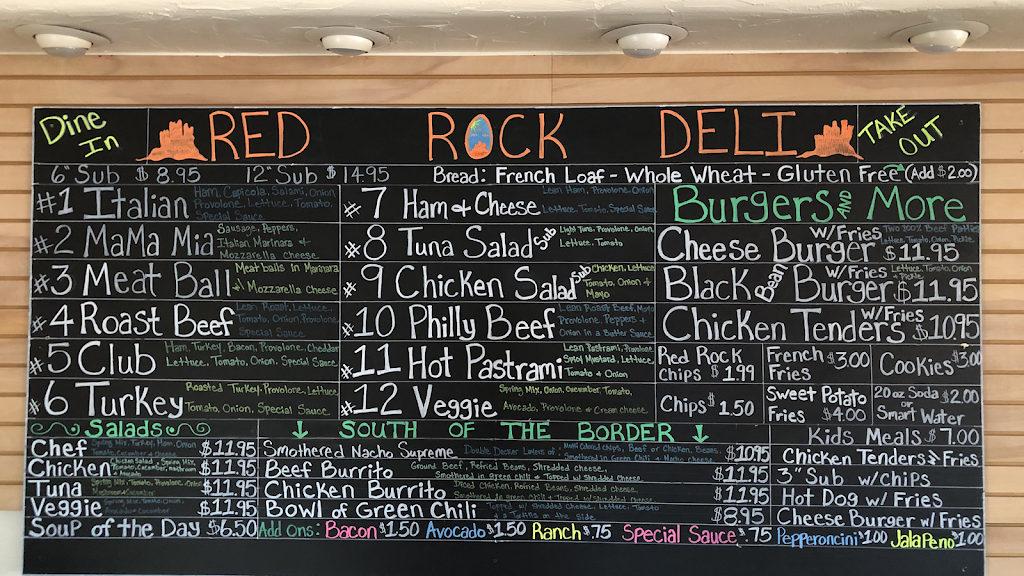 Dine In RED ROCK DELI TAKE OUT
6" Sub $8.95 12" Sub $14.95 Bread: French Loaf - Whole Wheat - Gluten Free (Add $2.00)
#1 Italian Ham, Capicola, Salami, Onion
Provolone, Lettuce, Tomato,
Special Sauce
#2 MaMa Mia Sausage, Peppers,
Italian Marinara +
Mozzarella Cheese
#3 Meat Ball Meatballs in Marinara
+ Mozzarella Cheese
#4 Roast Beef Lean Roast, Lettuce,
Tomato, Onion, Provolone,
Special Sauce
#5 Club Ham, Turkey, Bacon, Provolone, Cheddar
Lettuce, Tomato, Onion, Special Sauce
#6 Turkey Roasted Turkey, Provolone, Lettuce
Tomato, Onion, Special Sauce
#7 Ham & Cheese Lean Ham, Provolone, Onion
Lettuce, Tomato, Special Sauce
#8 Tuna Salad Sub Light Tuna, Provolone, Onion,
Lettuce, Tomato
#9 Chicken Salad Sub Chicken, Lettuce
Tomato, Onion +
Mayo
#10 Philly Beef Lean Roast Beef,
Provolone, Peppers +
Onion in a Butter Sauce
#11 Hot Pastrami Lean Pastrami, Provolone
Spicy Mustard, Lettuce,
Tomato + Onion
#12 Veggie Spring Mix, Onion, Cucumber, Tomato,
Avocado, Provolone + Cream cheese
Burgers AND More
Cheese Burger w/Fries Two 100% Beef Patties
Lettuce, Tomato, Onion, Pickle
$11.95
Black Bean Burger w/Fries Lettuce, Tomato, Onion
+ Pickle
$11.95
Chicken Tenders w/Fries $10.95
Red Rock Chips $1.99
French Fries $3.00
Cookies $3.00
Chips $1.50
Sweet Potato Fries $4.00
20oz Soda or Smart Water $2.00
Salads
Chef Spring Mix, Turkey, Ham, Onion
Tomato, Cucumber + Cheese
$11.95
Chicken Chicken Salad + Spring Mix,
Tomato, Cucumber, Mushroom
+ Avocado
$11.95
Tuna Spring Mix, Tomato, Onion
Mushroom + Cucumber
$11.95
Veggie
Avocado + Cucumber
$11.95
Soup of the Day $6.50
↓ SOUTH OF THE BORDER ↓
Smothered Nacho Supreme Double Decker Layers of: Multi Colored chips, Beef or Chicken, Beans,
Smothered in Green Chili + Nacho cheese
$10.95
Beef Burrito Ground Beef, Refried Beans, Shredded cheese,
Smothered in green chili + Topped w/ Shredded cheese
$11.95
Chicken Burrito Diced Chicken, Refried Beans, Shredded cheese,
Smothered in green chili + Topped w/ Shredded cheese
$11.95
Bowl of Green Chili Topped w/ Shredded Cheese, Lettuce, Tomato
+ a Tortilla on the Side
$8.95
Kids Meals $7.00
Chicken Tenders & Fries
3" Sub w/chips
Hot Dog w/ Fries
Cheese Burger w/ Fries
Add Ons: Bacon $1.50 Avocado $1.50 Ranch $.75 Special Sauce $.75 Pepperoncini $1.00 Jalapeno $1.00